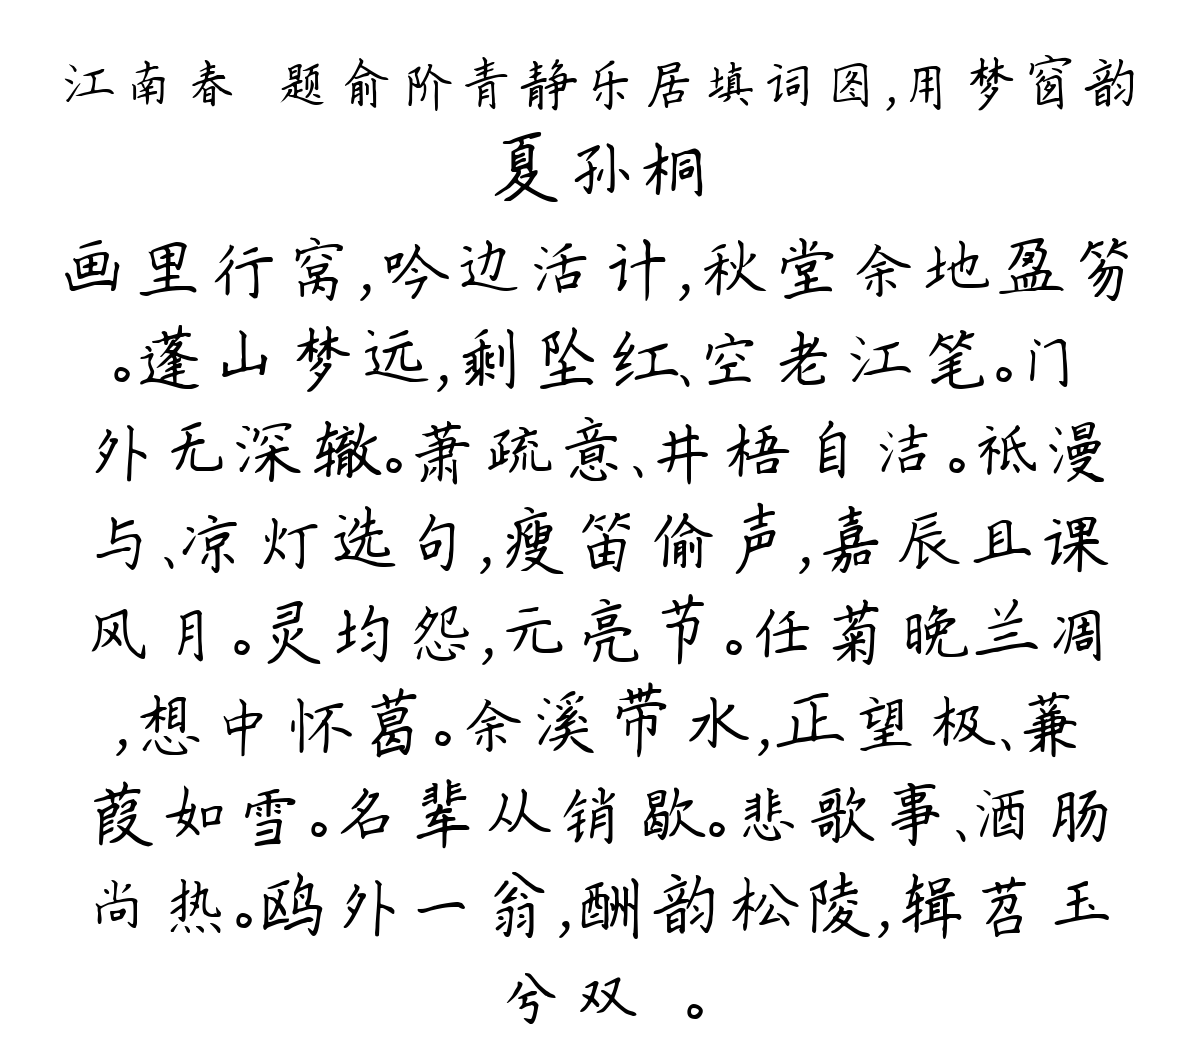 江南春 题俞阶青静乐居填词图,用梦窗韵
夏孙桐
画里行窝,吟边活计,秋堂余地盈笏
。蓬山梦远,剩坠红、空老江笔。门
外无深辙。萧疏意、井梧自洁。祗漫
与、凉灯选句,瘦笛偷声,嘉辰且课
风月。灵均怨,元亮节。任菊晚兰凋
,想中怀葛。余溪带水,正望极、蒹
葭如雪。名辈从销歇。悲歌事、酒肠
尚热。鸥外一翁,酬韵松陵,辑苕玉
兮双 。